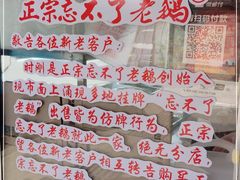 正宗忘不了老鹅
微邮付
扫码付款
敬告各位新老客户:
时刚是正宗忘不了老鹅创始人
现市面上涌现多地挂牌"忘不了
老鹅"出售皆为仿牌行为,正宗
"忘不了老鹅就此一家,绝无分店,
望各位新老客户相互转告购买正
宗忘不了老鹅